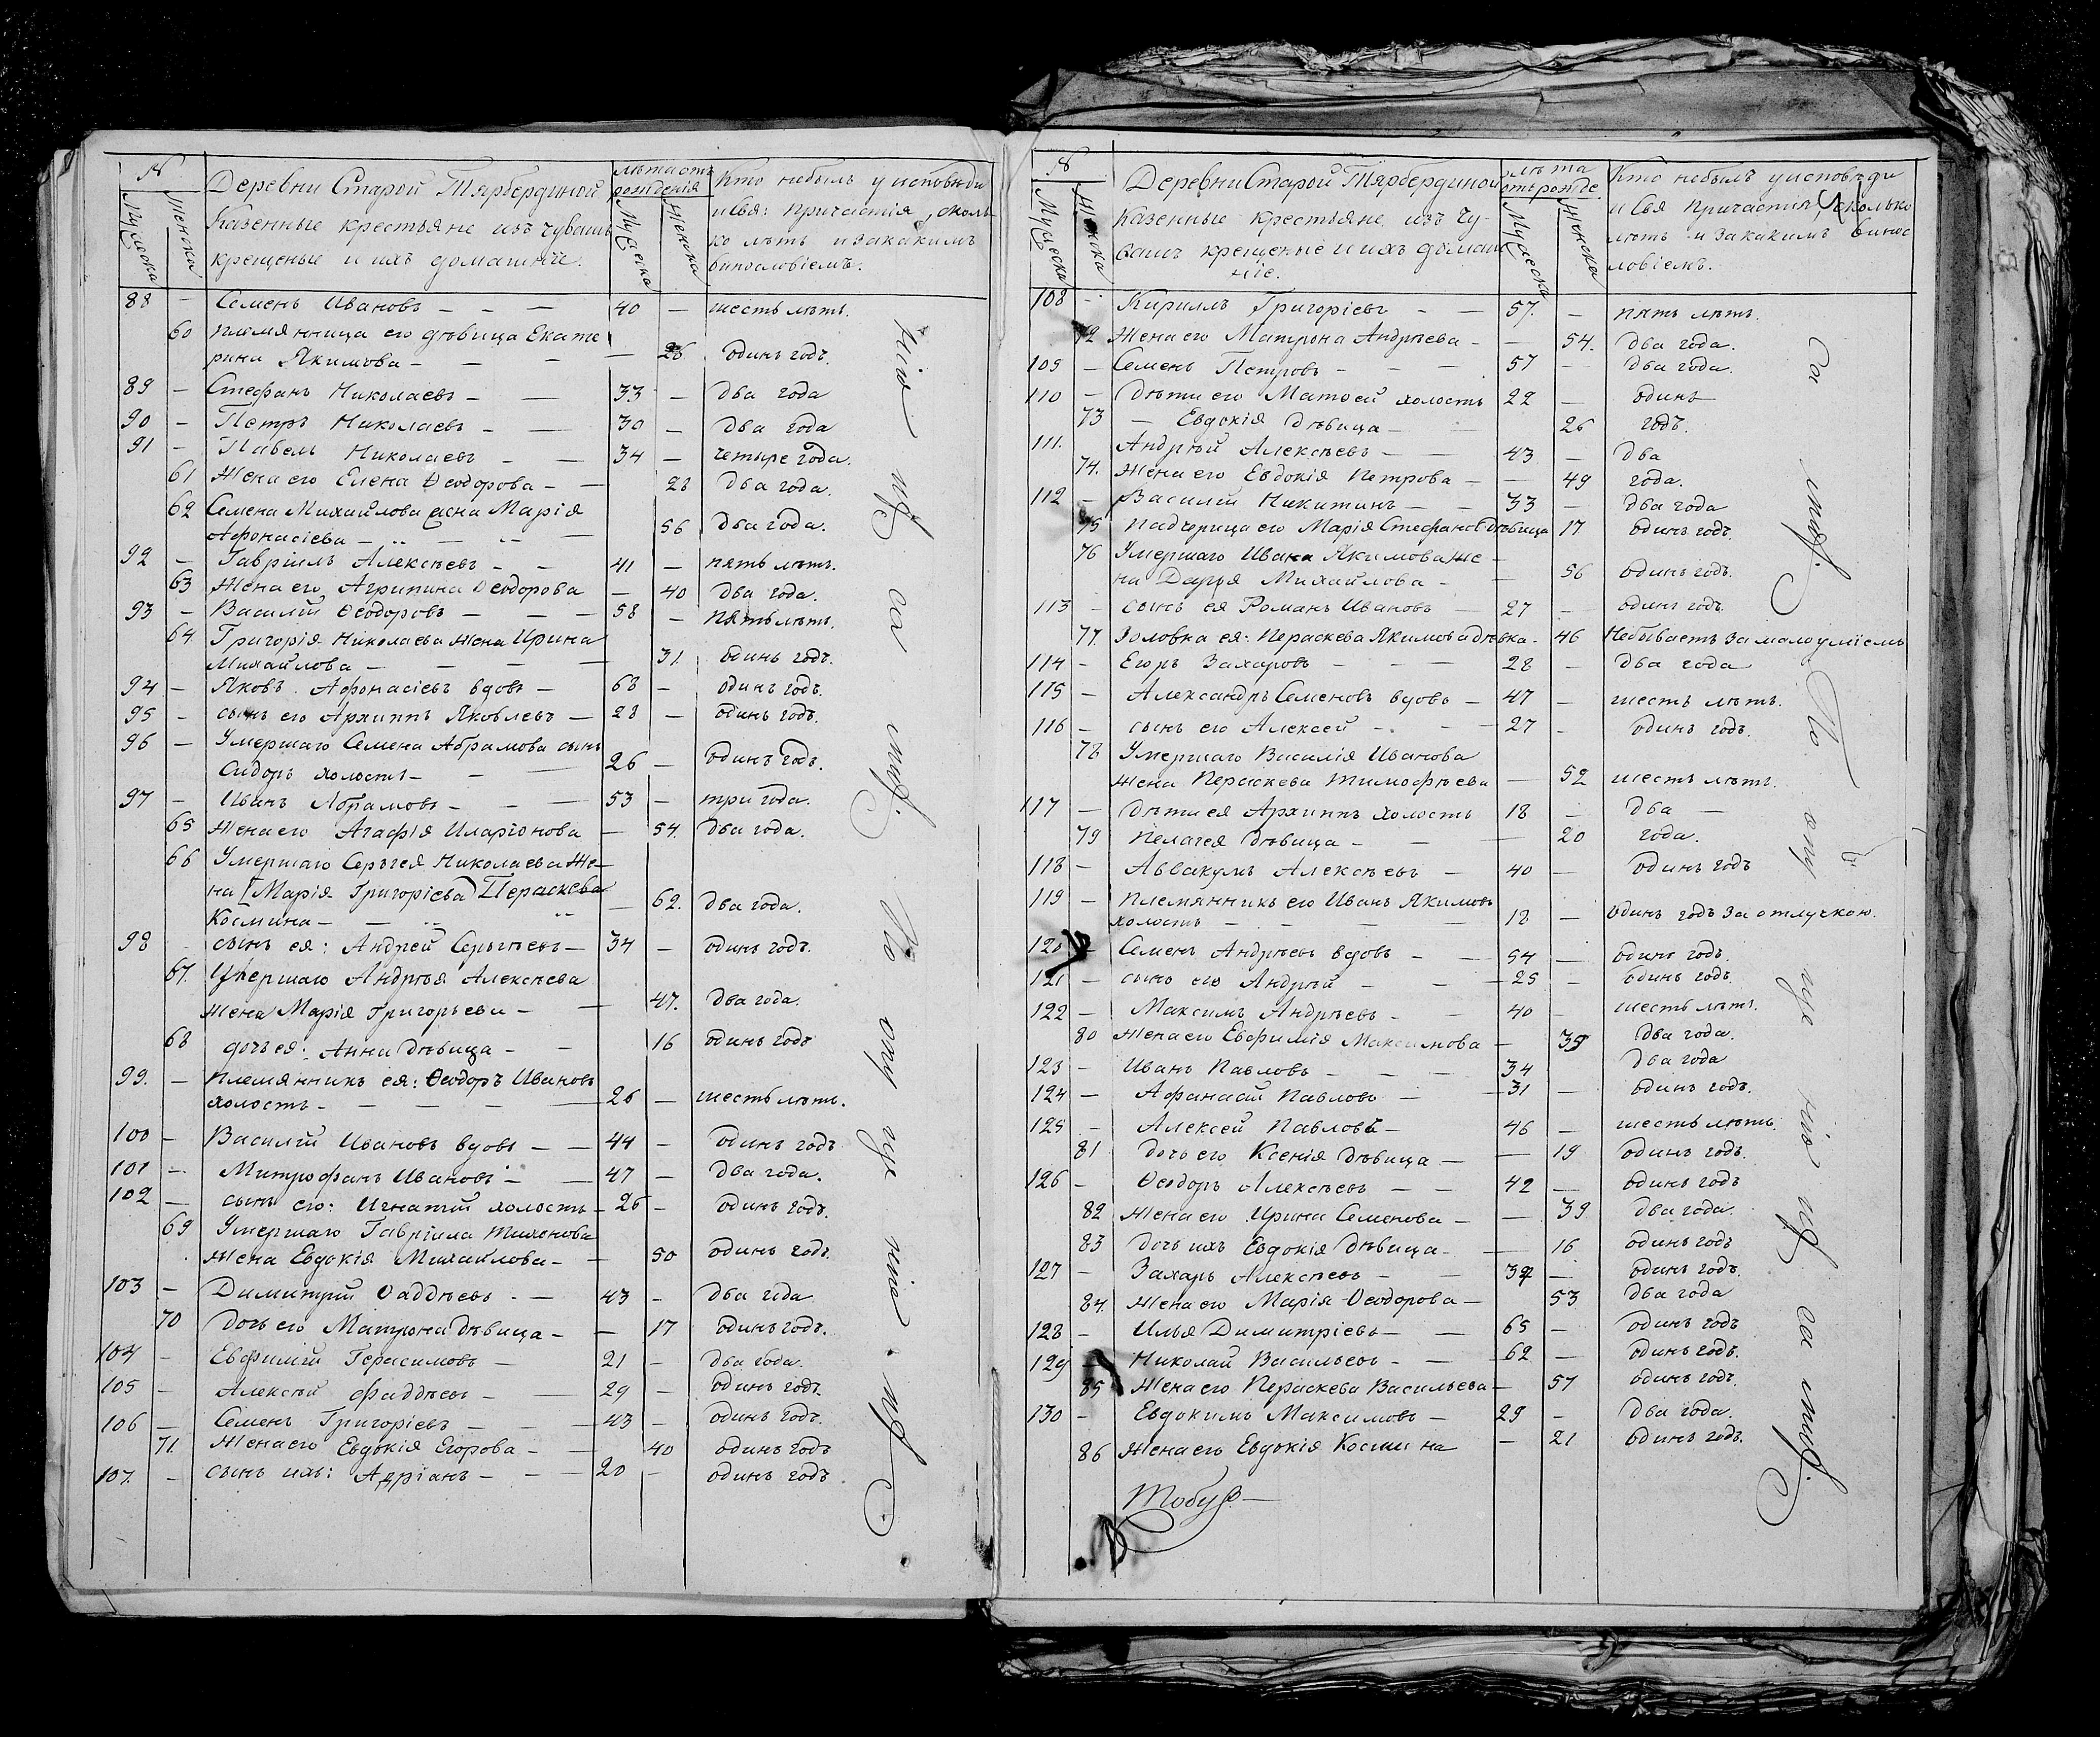 №
Мужеска
Женска
Деревни Старой Тярбердиной
Казенные крестьяне изъ чувашъ
крещеные и ихъ домашніе.
лѣта отъ
рожденія
Мужеска
Женска
Кто небылъ у исповѣди
и Свя: Причастія, сколь-
ко лѣтъ и закакимъ
винословіемъ.
88 – Семенъ Ивановъ – – – 40 – шесть лѣтъ.
60 племянница его дѣвица Екате
рина Якимова – – – 26 одинъ годъ.
89 – Стефанъ Николаевъ – – 33 – два года
90 – Петръ Николаевъ – – 30 – два года
91 – Павелъ Николаевъ – – 34 – четыре года.
61 Жена его Елена Ѳеодорова – – 28 два года.
62 Семена Михайлова жена Марія
Афонасіева – – – 56 два года.
92 – Гавріилъ Алексѣевъ – – 41 – пять лѣтъ.
63 Жена его Агрипина Ѳеодорова – 40 два года.
93 – Василій Ѳеодоровъ – – 58 – пять лѣтъ.
64 Григорія Николаева жена Ирина
Михайлова – – – – 31. одинъ годъ.
94 – Яковъ Афонасіевъ вдовъ – 68 – одинъ годъ.
95 – сынъ его Архиппъ Яковлевъ – 28 – одинъ годъ.
96 – Умершаго Семена Абрамова сынъ
Сидоръ холостъ – – – 26 – одинъ годъ.
97 – Иванъ Абрамовъ – – – 53 – три года.
65 Жена его Агафія Иларіонова – 54. два года.
66 Умершаго Сергѣя Николаева Же-
на [Марія Григоріева] Пераскева
Космина – – – 62. два года.
98 – сынъ ея: Андрей Сергѣевъ – 34 – одинъ годъ.
67. Умершаго Андрѣя Алексѣева
жена Марія Григорьева – – 47. два года.
68 дочь ея: Анна дѣвица – – 16 одинъ годъ
99. – Племянникъ ея: Ѳеодоръ Ивановъ
холостъ – – – – 26 – шесть лѣтъ.
100 – Василій Ивановъ вдовъ – – 44 – одинъ годъ
101 – Митрофанъ Ивановъ – – 47 – два года.
102 – сынъ его: Игнатій холостъ – 26 – одинъ годъ.
69 Умершаго Гавріила Тихонова
жена Евдокія Михайлова – – 50 одинъ годъ.
103 – Димитрій Ѳаддѣевъ – – 43 – два года
70 Дочь его Матрона дѣвица – – 17 одинъ годъ.
104 – Евфимій Герасимовъ – 21 – два года.
105 – Алексѣй Фаддѣевъ – – 29 – одинъ годъ.
106 – Семенъ Григоріевъ – – – 43 – одинъ годъ.
71. Жена его Евдокія Егорова – – 40 одинъ годъ
107. – сынъ ихъ: Адріанъ – – – 20 – одинъ годъ.
№
Мужеска
Женска
Деревни Старой Тярбердиной
Казенные крестьяне изъ чу-
вашъ крещеные и ихъ домаш
ніе.
лѣта
отъ рожде
Мужеска
Женска
Кто небылъ у исповѣди
и Свя Причастія, сколько
лѣтъ и закакимъ винос
ловіемъ.
108 – Кириллъ Григоріевъ – – 57. – пять лѣтъ.
72 Жена его Матрона Андрѣева – – 54. два года.
109 – Семенъ Петровъ – – – 57 – два года.
110 – Дѣти его Матѳей холостъ 22 – одинъ
73 – Евдокія дѣвица – – 26 годъ.
111. Андрѣй Алексѣевъ – – 43 – два
74. Жена его Евдокія Петрова – – 49 года.
112 – Василій Никитинъ – – 33 – два года
75 Падчерица его Марія Стефанов дѣвица 17 одинъ годъ.
76 Умершаго Ивана Якимова же –
на Дарья Михайлова – – 56 одинъ годъ.
113 – сынъ ея Романъ Ивановъ – 27 – одинъ годъ.
77. Золовка ея: Пераскева Якимова дѣвка – 46 Небываетъ за малоуміемъ
114 – Егоръ Захаровъ – – – 28 – два года
115 – Александръ Семеновъ вдовъ – 47 – шесть лѣтъ.
116 – сынъ его Алексей – – 27 – одинъ годъ.
78 Умершаго Василія Иванова
жена Пераскева Тимофѣева – 52 шесть лѣтъ.
117 – Дѣти ея Архиппъ холостъ 18 – два –
79 Пелагея дѣвица – – – 20 года.
118 – Аввакумъ Алексѣевъ – 40 – одинъ годъ
119 – Племянникъ его Иванъ Якимовъ
холостъ – – – – 18 – одинъ годъ за отлучкою.
120 – Семенъ Андрѣевъ вдовъ – – 54 – одинъ годъ.
121 – сынъ его Андрѣй – – – 25 – одинъ годъ.
122 – Максимъ Андрѣевъ – – 40 – шесть лѣтъ.
80 Жена его Евфимія Максимова – 39 два года.
123 – Иванъ Павловъ – – – 34 два года
124 – Афанасій Павловъ – – 31 – одинъ годъ.
125 – Алексей Павловъ – 46 – шесть лѣтъ.
81 Дочь его Ксенія дѣвица – – 19 одинъ годъ.
126 – Ѳеодоръ Алексѣевъ – – 42 – одинъ годъ
82 Жена его Ирина Семенова – – 39 два года.
83 Дочь ихъ Евдокія дѣвица – – 16 одинъ годъ
127 – Захаръ Алексѣевъ – – – одинъ годъ.
84. Жена его Марія Ѳеодорова – 53 два года
128 – Илья Димитріевъ – – 65 – одинъ годъ
129 – Николай Васильевъ – – 62 – одинъ годъ.
85 Жена его Пераскева Васильева – 57 одинъ годъ.
130 – Евдокимъ Максимовъ – 29 – два года.
86 Жена его Евдокія Космина – 21 одинъ годъ.